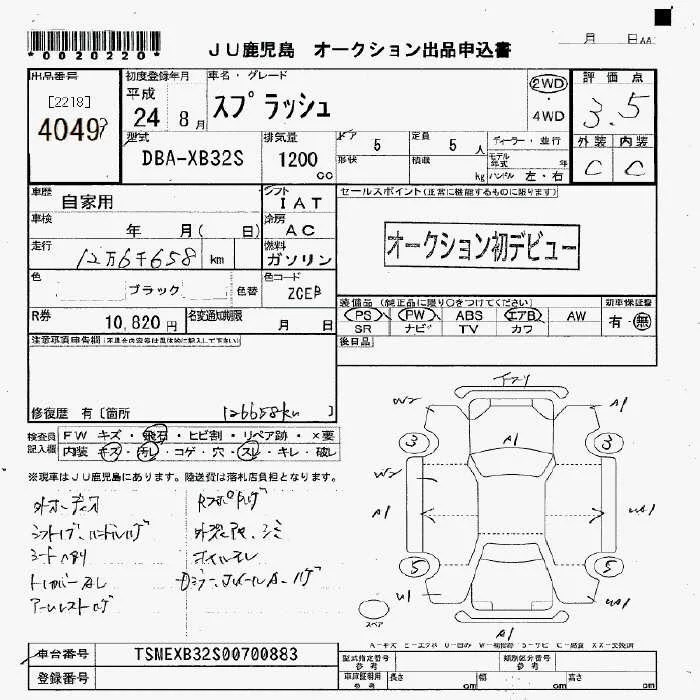 *0020220*
JU鹿児島 オークション出品申込書
月 日AA
出品番号
[2218]
4049
初度登録年月
平成
24 8月
車名・グレード
スプラッシュ
2WD
・
4WD
評価点
3.5
型式
DBA-XB32S
排気量
1200
cc
ドア 5
形状
定員 5人
積載 kg
ディーラー・並行
モデル年式 年
ハンドル 左・右
外装 内装
C C
車歴
自家用
シフト
IAT
セールスポイント(正常に機能するものに限ります)
車検
年 月( 日)
冷房
AC
オークション初デビュー
走行
12万6千658 km
燃料
ガソリン
色
ブラック
色替
色コード
ZCEB
装備品(純正品に限り○をつけてください)
新車保証書
R券
10,820円
名変通知期限
月 日
PS PW ABS エアB AW
SR ナビ TV カワ
有・無
注意事項申告欄(不具合内容等は具体的に記入して下さい)
後日品
修復歴 有〔箇所 126658km 〕
検査員
記入欄
FW キズ・飛石・ヒビ割・リペア跡・×要
内装 キズ・汚レ・コゲ・穴・スレ・キレ・破レ
※現車はJU鹿児島にあります。陸送費は落札店負担となります。
外オーディオ
シフトノブ、ハンドルハゲ
シートハタリ
トノカバーナシ
アームレストハゲ
ホイルスレ
W2
A1
3
A1
3
W2
A1
5
5
U1
A1
スペア
A-キズ E-エクボ U-凹み W-補修跡 S-サビ C-腐食 XX-交換済
車台番号
TSMEXB32S00700883
登録番号
型式指定番号
参考
類別区分番号
参考
車庫証明用
参考
長さ cm
幅 cm
高さ cm